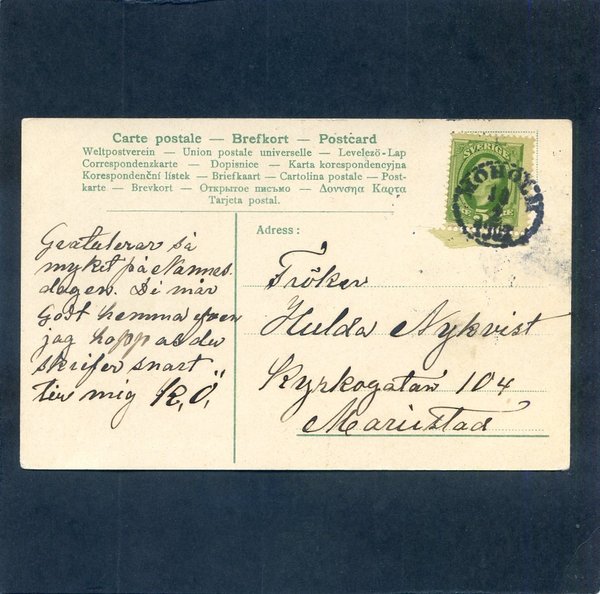 Carte postale — Brefkort — Postcard
Weltpostverein — Union postale universelle — Levelező-Lap
Correspondenzkarte — Dopisnice — Karta korespondencyjna
Korespondenční lístek — Briefkaart — Cartolina postale — Post-
karte — Brevkort — Открытое письмо — Δονυσηα Καρτα
Tarjeta postal.
SVERIGE
5
MOHOLM
Gratulerar så
myket på Namns.
dagen. Di mår
Godt hemma även
jag hopp as du
skrifer snart
till mig K, Ö,
Adress:
Fröken
Hulda Nykvist
Kyrkogatan 104
Mariestad